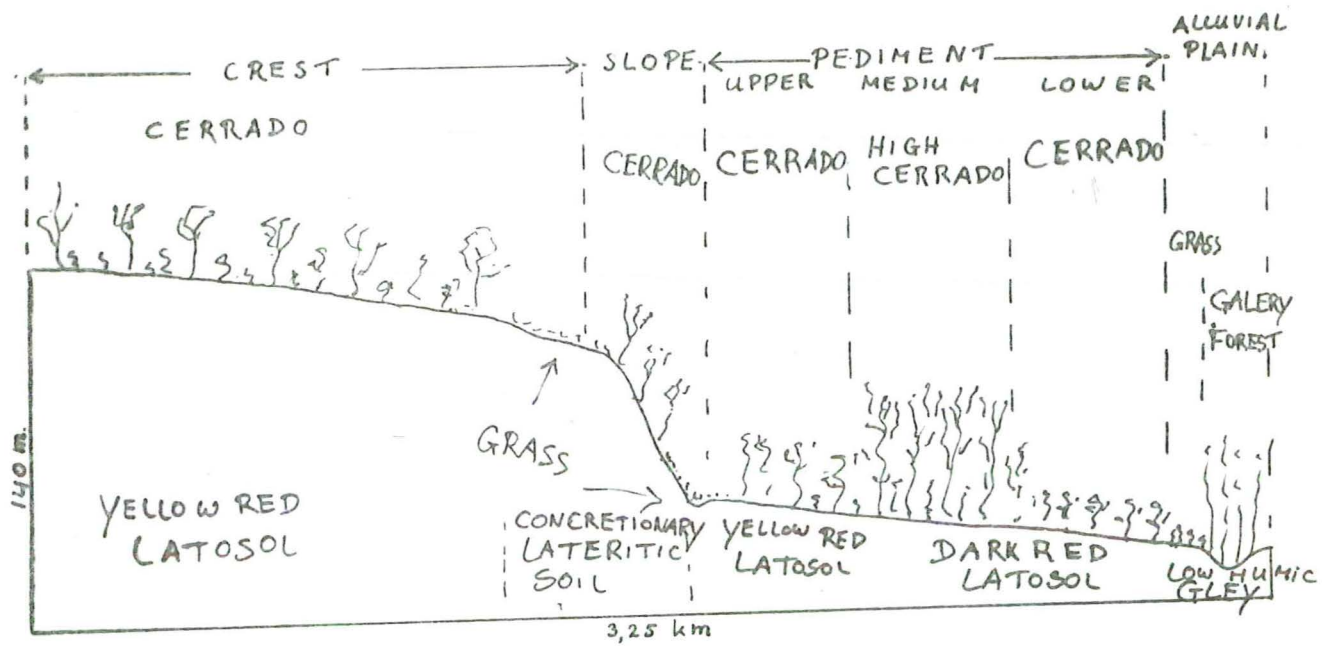 ALLUVIAL
PLAIN
CREST
SLOPE
PEDIMENT
UPPER MEDIUM LOWER
CERRADO
CERRADO
CERRADO
HIGH
CERRADO
CERRADO
GRASS
GALERY
FOREST
GRASS
140 m.
YELLOW RED
LATOSOL
CONCRETIONARY
LATERITIC
SOIL
YELLOW RED
LATOSOL
DARK RED
LATOSOL
LOW HUMIC
GLEY
3,25 km